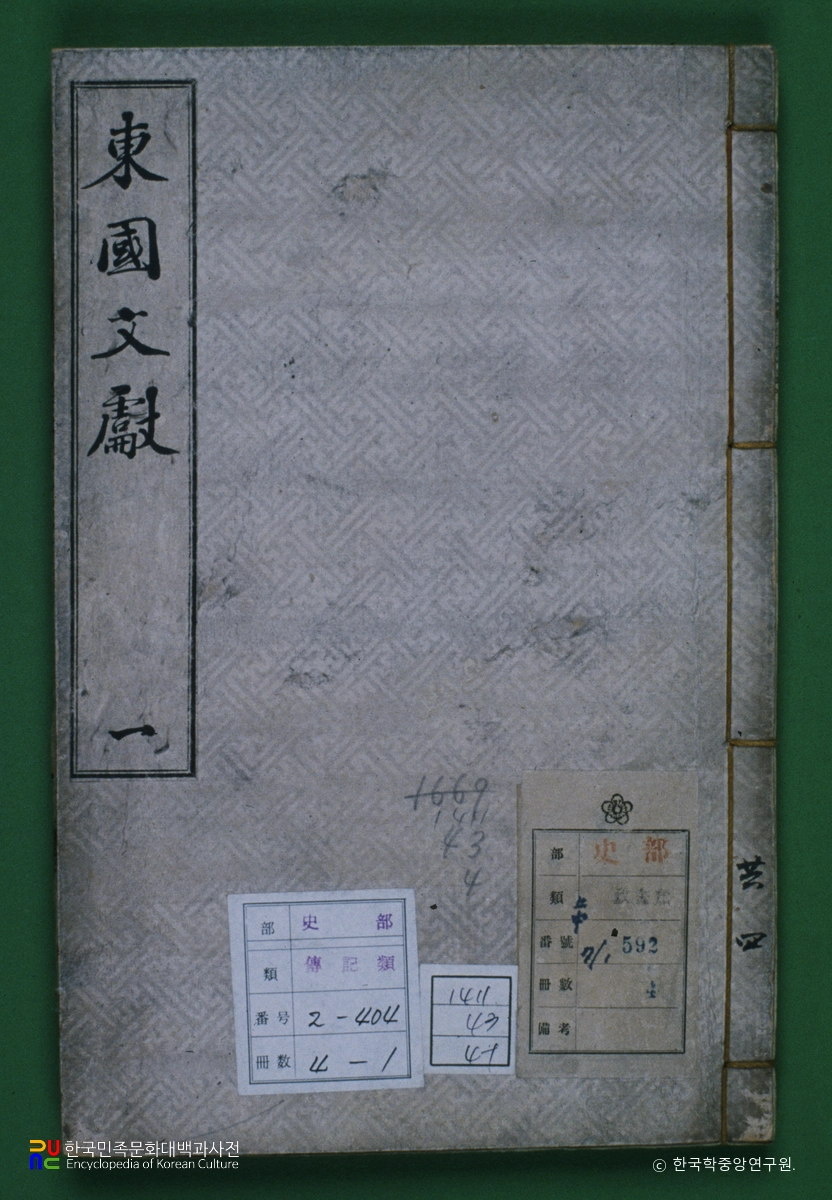 東國文獻
一
1669
43
4
部 史部
類
番號 592
冊數 4
備考
共四
部 史部
類 傳記類
番号 2-404
冊数 4-1
1411
43
4-1
한국민족문화대백과사전
Encyclopedia of Korean Culture
ⓒ 한국학중앙연구원.